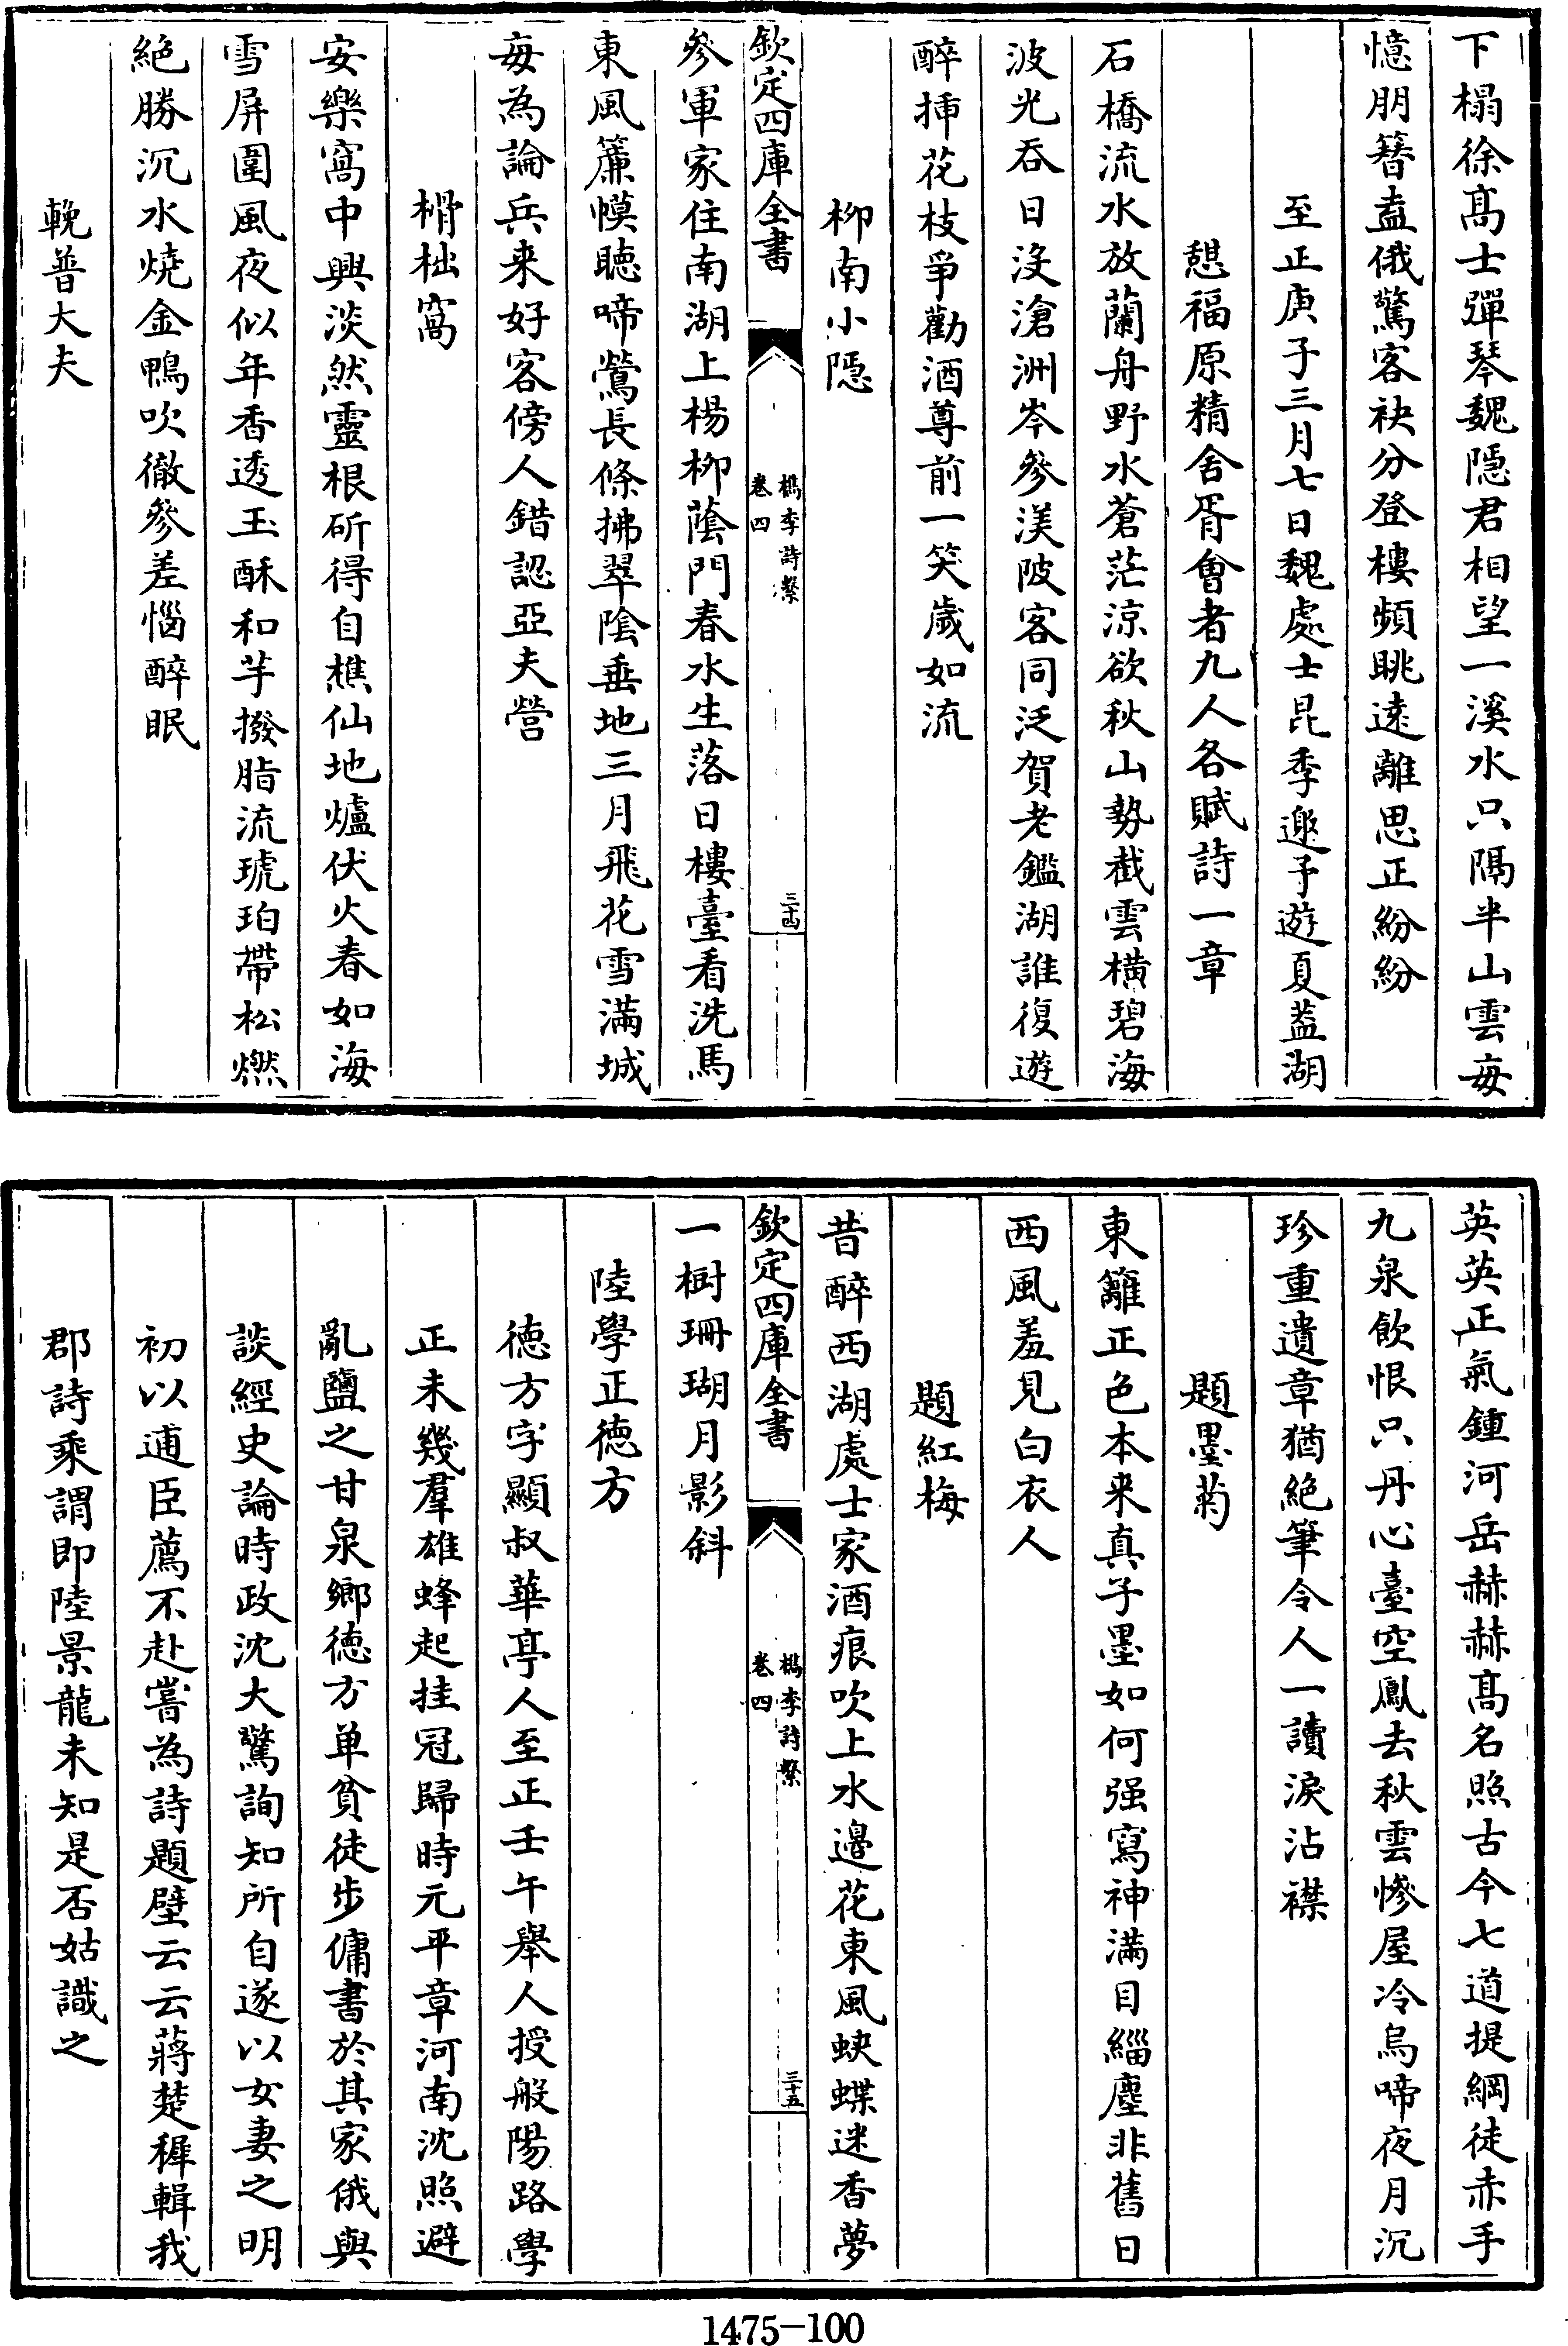 下榻徐髙士彈琴魏隠君相望一溪水只隔半山雲每
憶朋簪盍俄驚客袂分登樓頻眺遠離思正紛紛
至正庚子三月七日魏處士昆季邀予遊夏葢湖
憇福原精舍胥會者九人各賦詩一章
石橋流水放蘭舟野水蒼茫涼欲秋山勢截雲橫碧海
波光吞日沒滄洲岑參渼陂客同泛賀老鑑湖誰復遊
醉挿花枝爭勸酒尊前一笑歲如流
柳南小隠
欽定四庫全書
檇李詩繫
卷四
三十四
參軍家住南湖上楊柳蔭門春水生落日樓臺看洗馬
東風簾幙聴啼鶯長條拂翠陰垂地三月飛花雪滿城
每為論兵来好客傍人錯認亞夫營
榾柮窩
安樂窩中興淡然靈根斫得自樵仙地爐伏火春如海
雪屏圍風夜似年香透玉酥和芋撥脂流琥珀帶松燃
絶勝沉水燒金鴨吹徹參差惱醉眠
輓普大夫
英英正氣鍾河岳赫赫髙名照古今七道提綱徒赤手
九泉飲恨只丹心臺空鳳去秋雲慘屋冷烏啼夜月沉
珍重遺章猶絶筆令人一讀淚沾襟
題墨菊
東籬正色本来真子墨如何强寫神滿目緇塵非舊日
西風羞見白衣人
題紅梅
昔醉西湖處士家酒痕吹上水邉花東風蛺蝶迷香夢
欽定四庫全書
檇李詩繫
卷四
三十五
一樹珊瑚月影斜
陸學正徳方
徳方字顯叔華亭人至正壬午舉人授般陽路學
正未幾羣雄蜂起挂冠歸時元平章河南沈照避
亂鹽之甘泉鄉徳方单貧徒步傭書於其家俄與
談經史論時政沈大驚詢知所自遂以女妻之明
初以逋臣薦不赴嘗為詩題壁云云蔣楚穉輯我
郡詩乘謂即陸景龍未知是否姑識之
1475-100